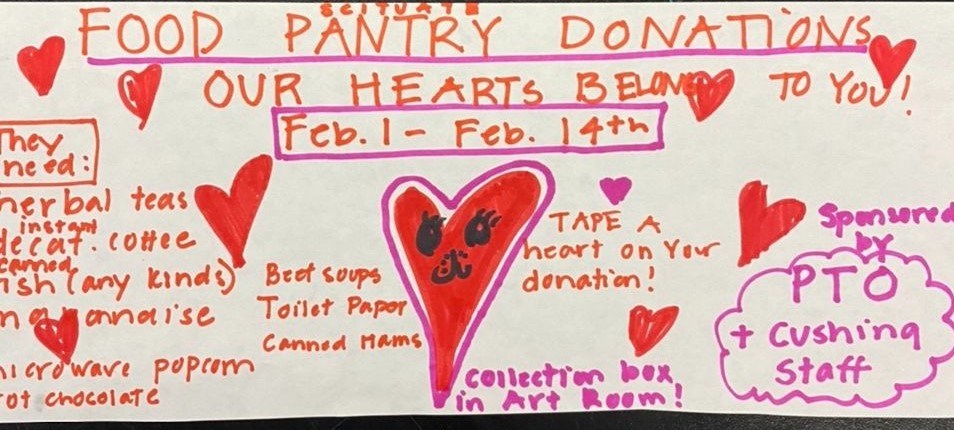 SCITUATE
FOOD PANTRY DONATIONS
OUR HEARTS BELONG TO YOU!
Feb. 1 - Feb. 14th
They
need:
herbal teas
instant
decaf. coffee
canned
fish (any kinds)
mayonnaise
microwave popcorn
hot chocolate
Beef soups
Toilet Paper
Canned Hams
TAPE A
heart on Your
donation!
collection box
in Art Room!
Sponsored
by
PTO
+ Cushing
Staff